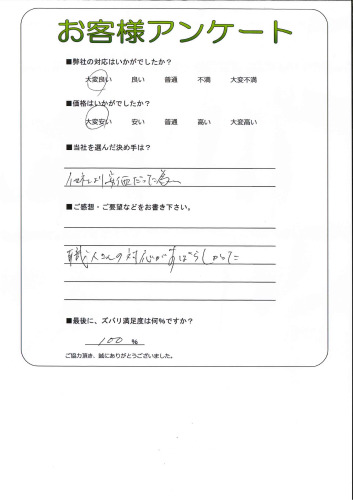 お客様アンケート
■弊社の対応はいかがでしたか？
大変良い 良い 普通 不満 大変不満
■価格はいかがでしたか？
大変安い 安い 普通 高い 大変高い
■当社を選んだ決め手は？
他社より安価だった為
■ご感想・ご要望などをお書き下さい。
職人さんの対応がすばらしかった
■最後に、ズバリ満足度は何%ですか？
100 %
ご協力頂き、誠にありがとうございました。